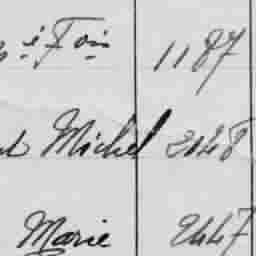 Fois 1187
Michel 2048
Marie 2447